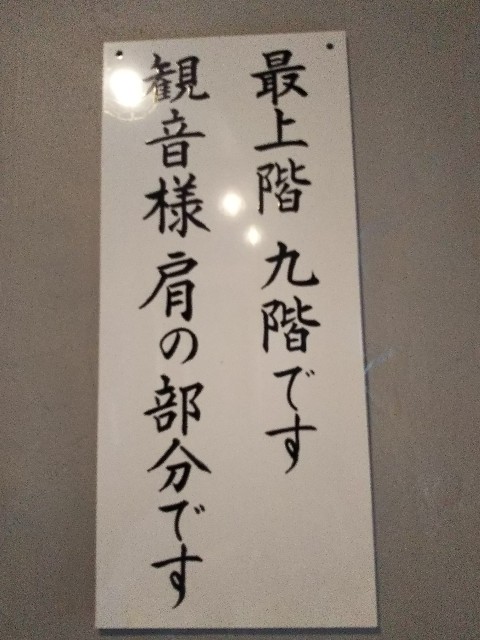 最上階 九階です
観音様肩の部分です